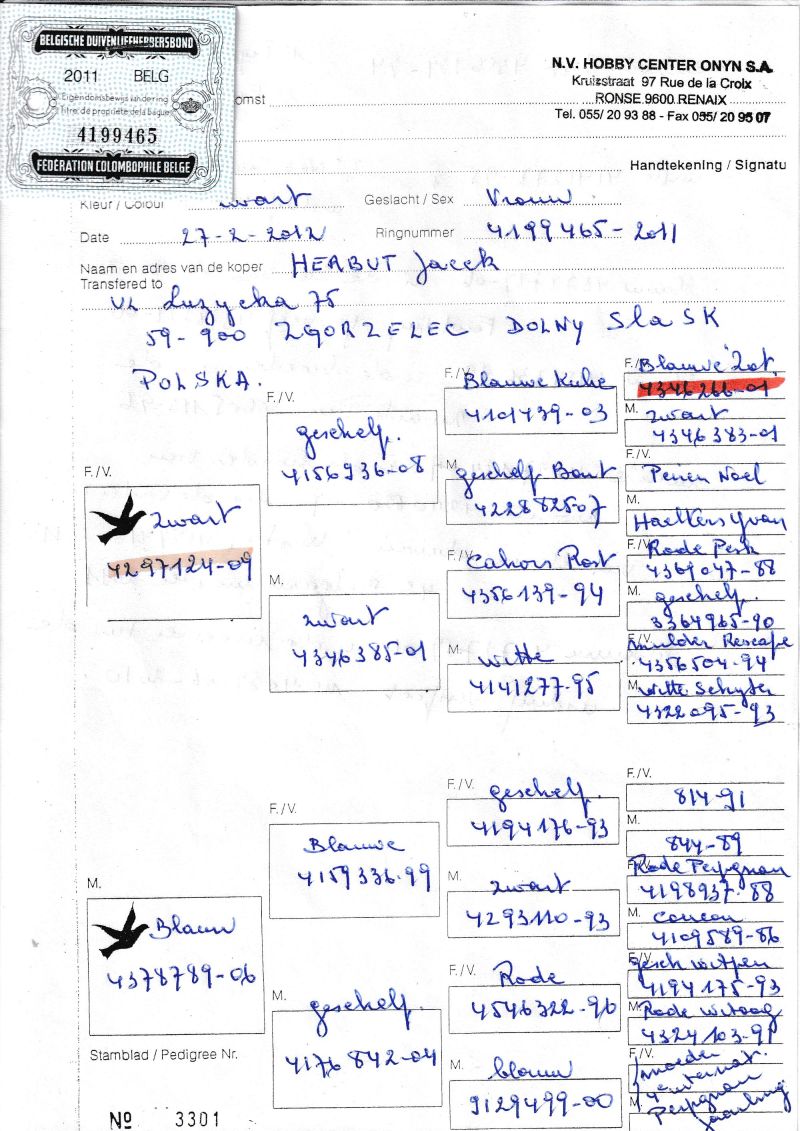 BELGISCHE DUIVENLIEFHEBBERSBOND
2011 BELG
Eigendomsbewijs van de ring
Titre de propriété de la bague
4199465
FEDERATION COLOMBOPHILE BELGE
N.V. HOBBY CENTER ONYN S.A.
Kruisstraat 97 Rue de la Croix
RONSE 9600 RENAIX
Tel. 055/ 20 93 88 - Fax 055/ 20 95 07
omst
Handtekening / Signatu
Kleur / Colour zwart Geslacht / Sex Vrouw
Date 27-2-2012 Ringnummer 4199465-2011
Naam en adres van de koper HERBUT Jacek
Transfered to
UL Luzycka 75
59-900 ZGORZELEC DOLNY SlaSK
POLSKA.
F./V.
Zwart
4297124-09
F./V.
geschelp.
4156936-08
M.
zwart
4346385-01
F./V.
Blauwe Kuhe
4101439-03
M.
geschelp Bont
4228825-07
F./V.
Cahors Rost
4356139-94
M.
witte
4141277-95
F./V.
Blauwe Zot.
4346266-01
M.
zwart
4346383-01
F./V.
Peiren Noel
M.
Haelters Yvan
F./V.
Rode Perk
4369047-88
M.
geschelp.
3364965-90
F./V.
mulder Rescape
4356504-94
M.
witte Schyter
4322095-93
M.
Blauw
4378789-06
F./V.
Blauwe
4159336-99
M.
geschelp.
4176842-04
F./V.
geschelp.
4194176-93
M.
zwart
4293110-93
F./V.
Rode
4546322-96
M.
blauw
9129499-00
F./V.
814-91
M.
844-89
F./V.
Rode Perpignan
4198937-88
M.
concou
4109589-86
F./V.
gesch witpen
4194175-93
M.
Rode witoog
4324103-91
F./V.
moeder
internat.
M.
Perpignan
jaarling
Stamblad / Pedigree Nr.
Nº 3301